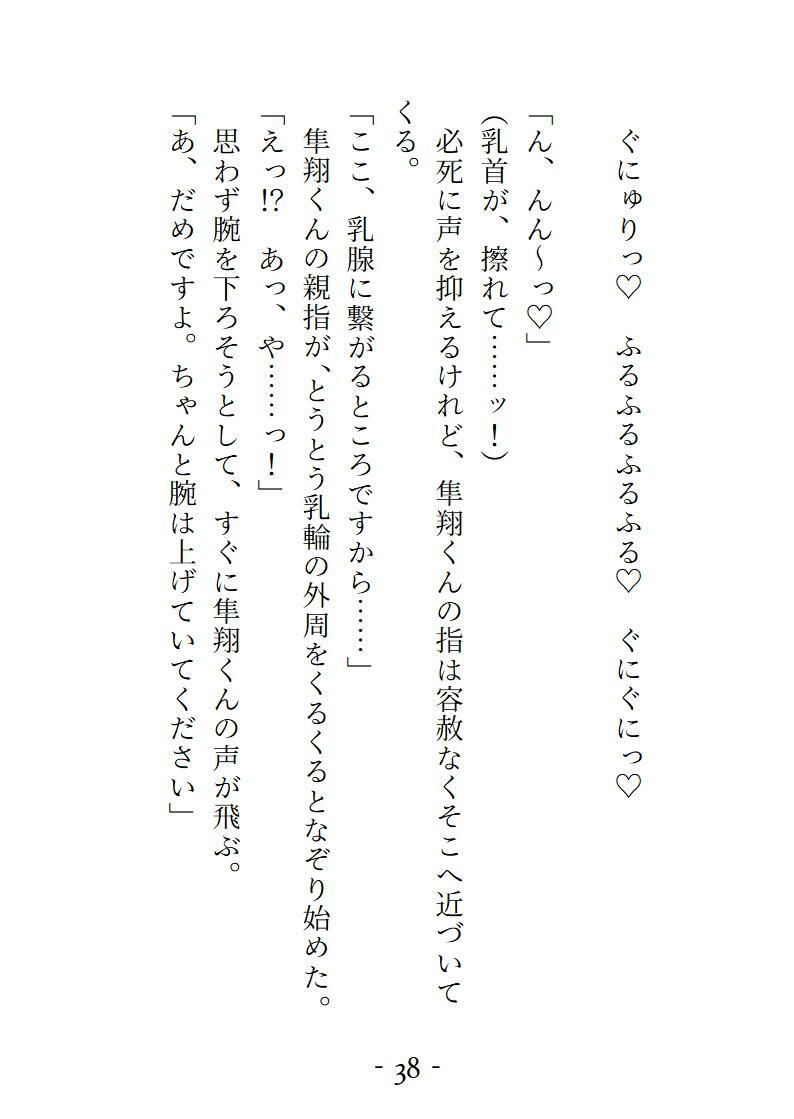 ぐにゅりっ♡　ふるふるふるふる♡　ぐにぐにっ♡
「ん、んん～っ♡」
（乳首が、擦れて……ッ！）
必死に声を抑えるけれど、隼翔くんの指は容赦なくそこへ近づいて
くる。
「ここ、乳腺に繋がるところですから……」
隼翔くんの親指が、とうとう乳輪の外周をくるくるとなぞり始めた。
「えっ!?　あっ、や……っ！」
思わず腕を下ろそうとして、すぐに隼翔くんの声が飛ぶ。
「あ、だめですよ。ちゃんと腕は上げていてください」
- 38 -